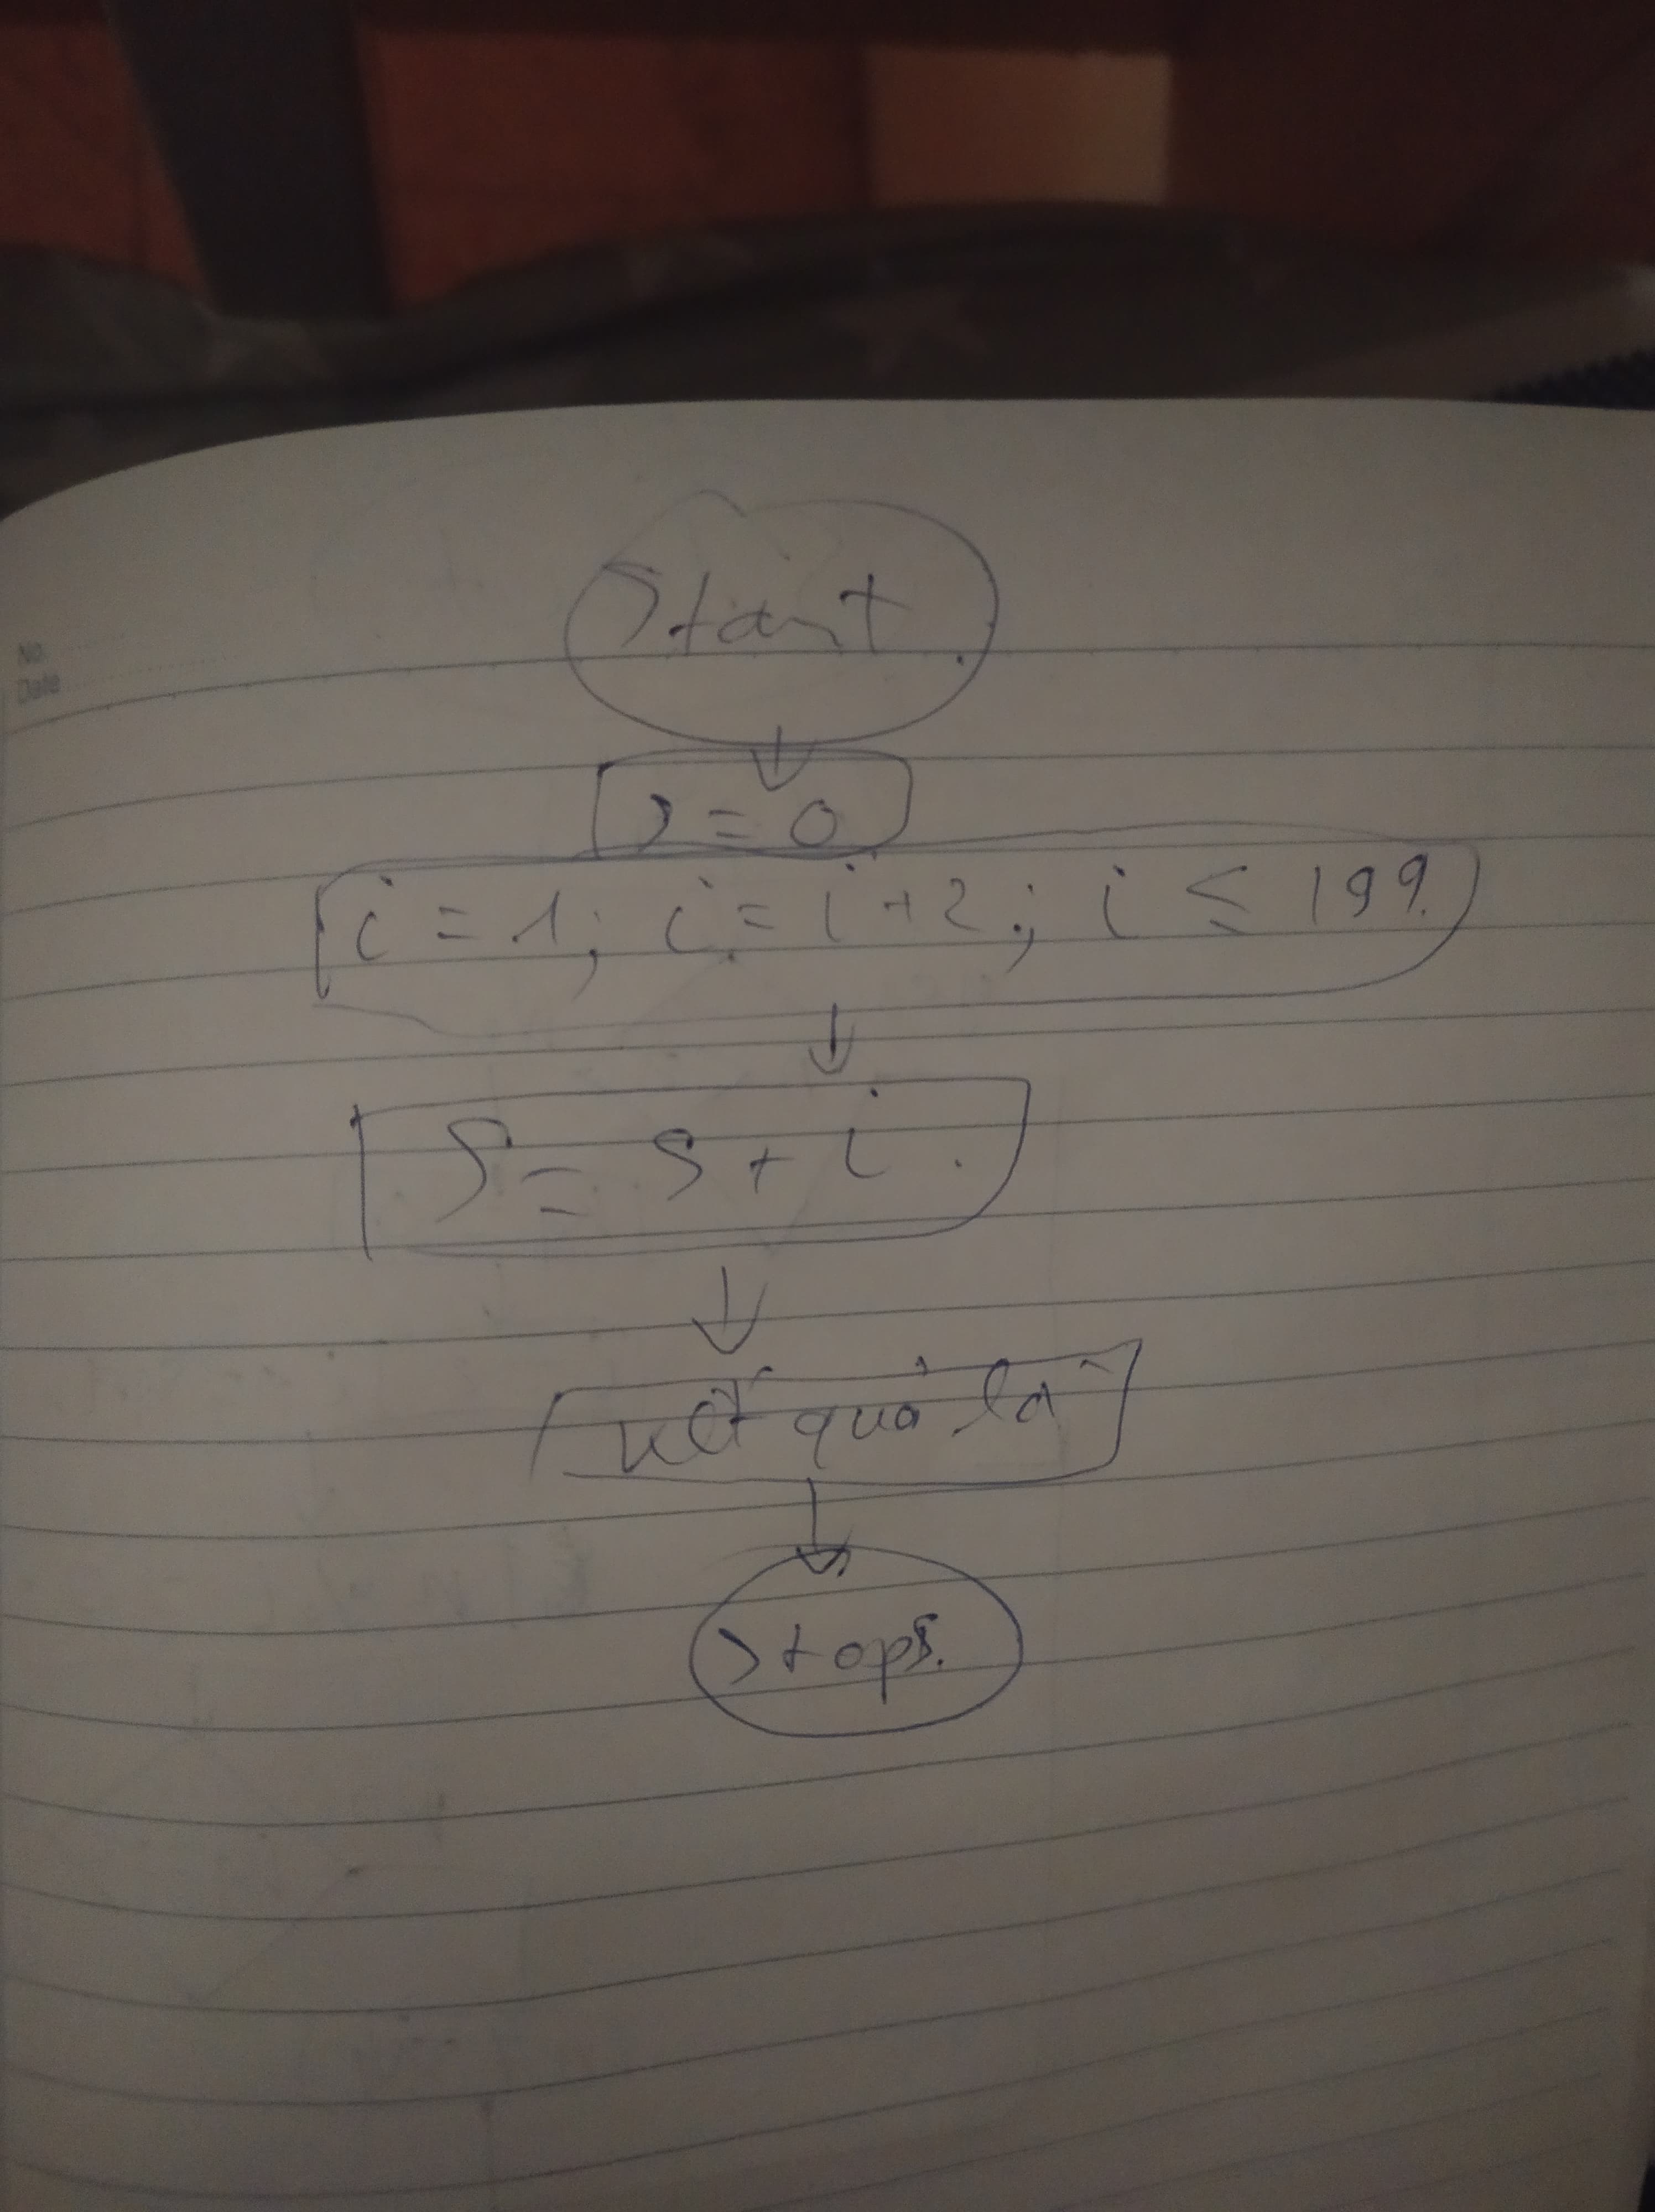 No.
Date
Start
S = 0
i = 1; i = i + 2; i ≤ 199.
S = S + i.
kết quả là
Stops.